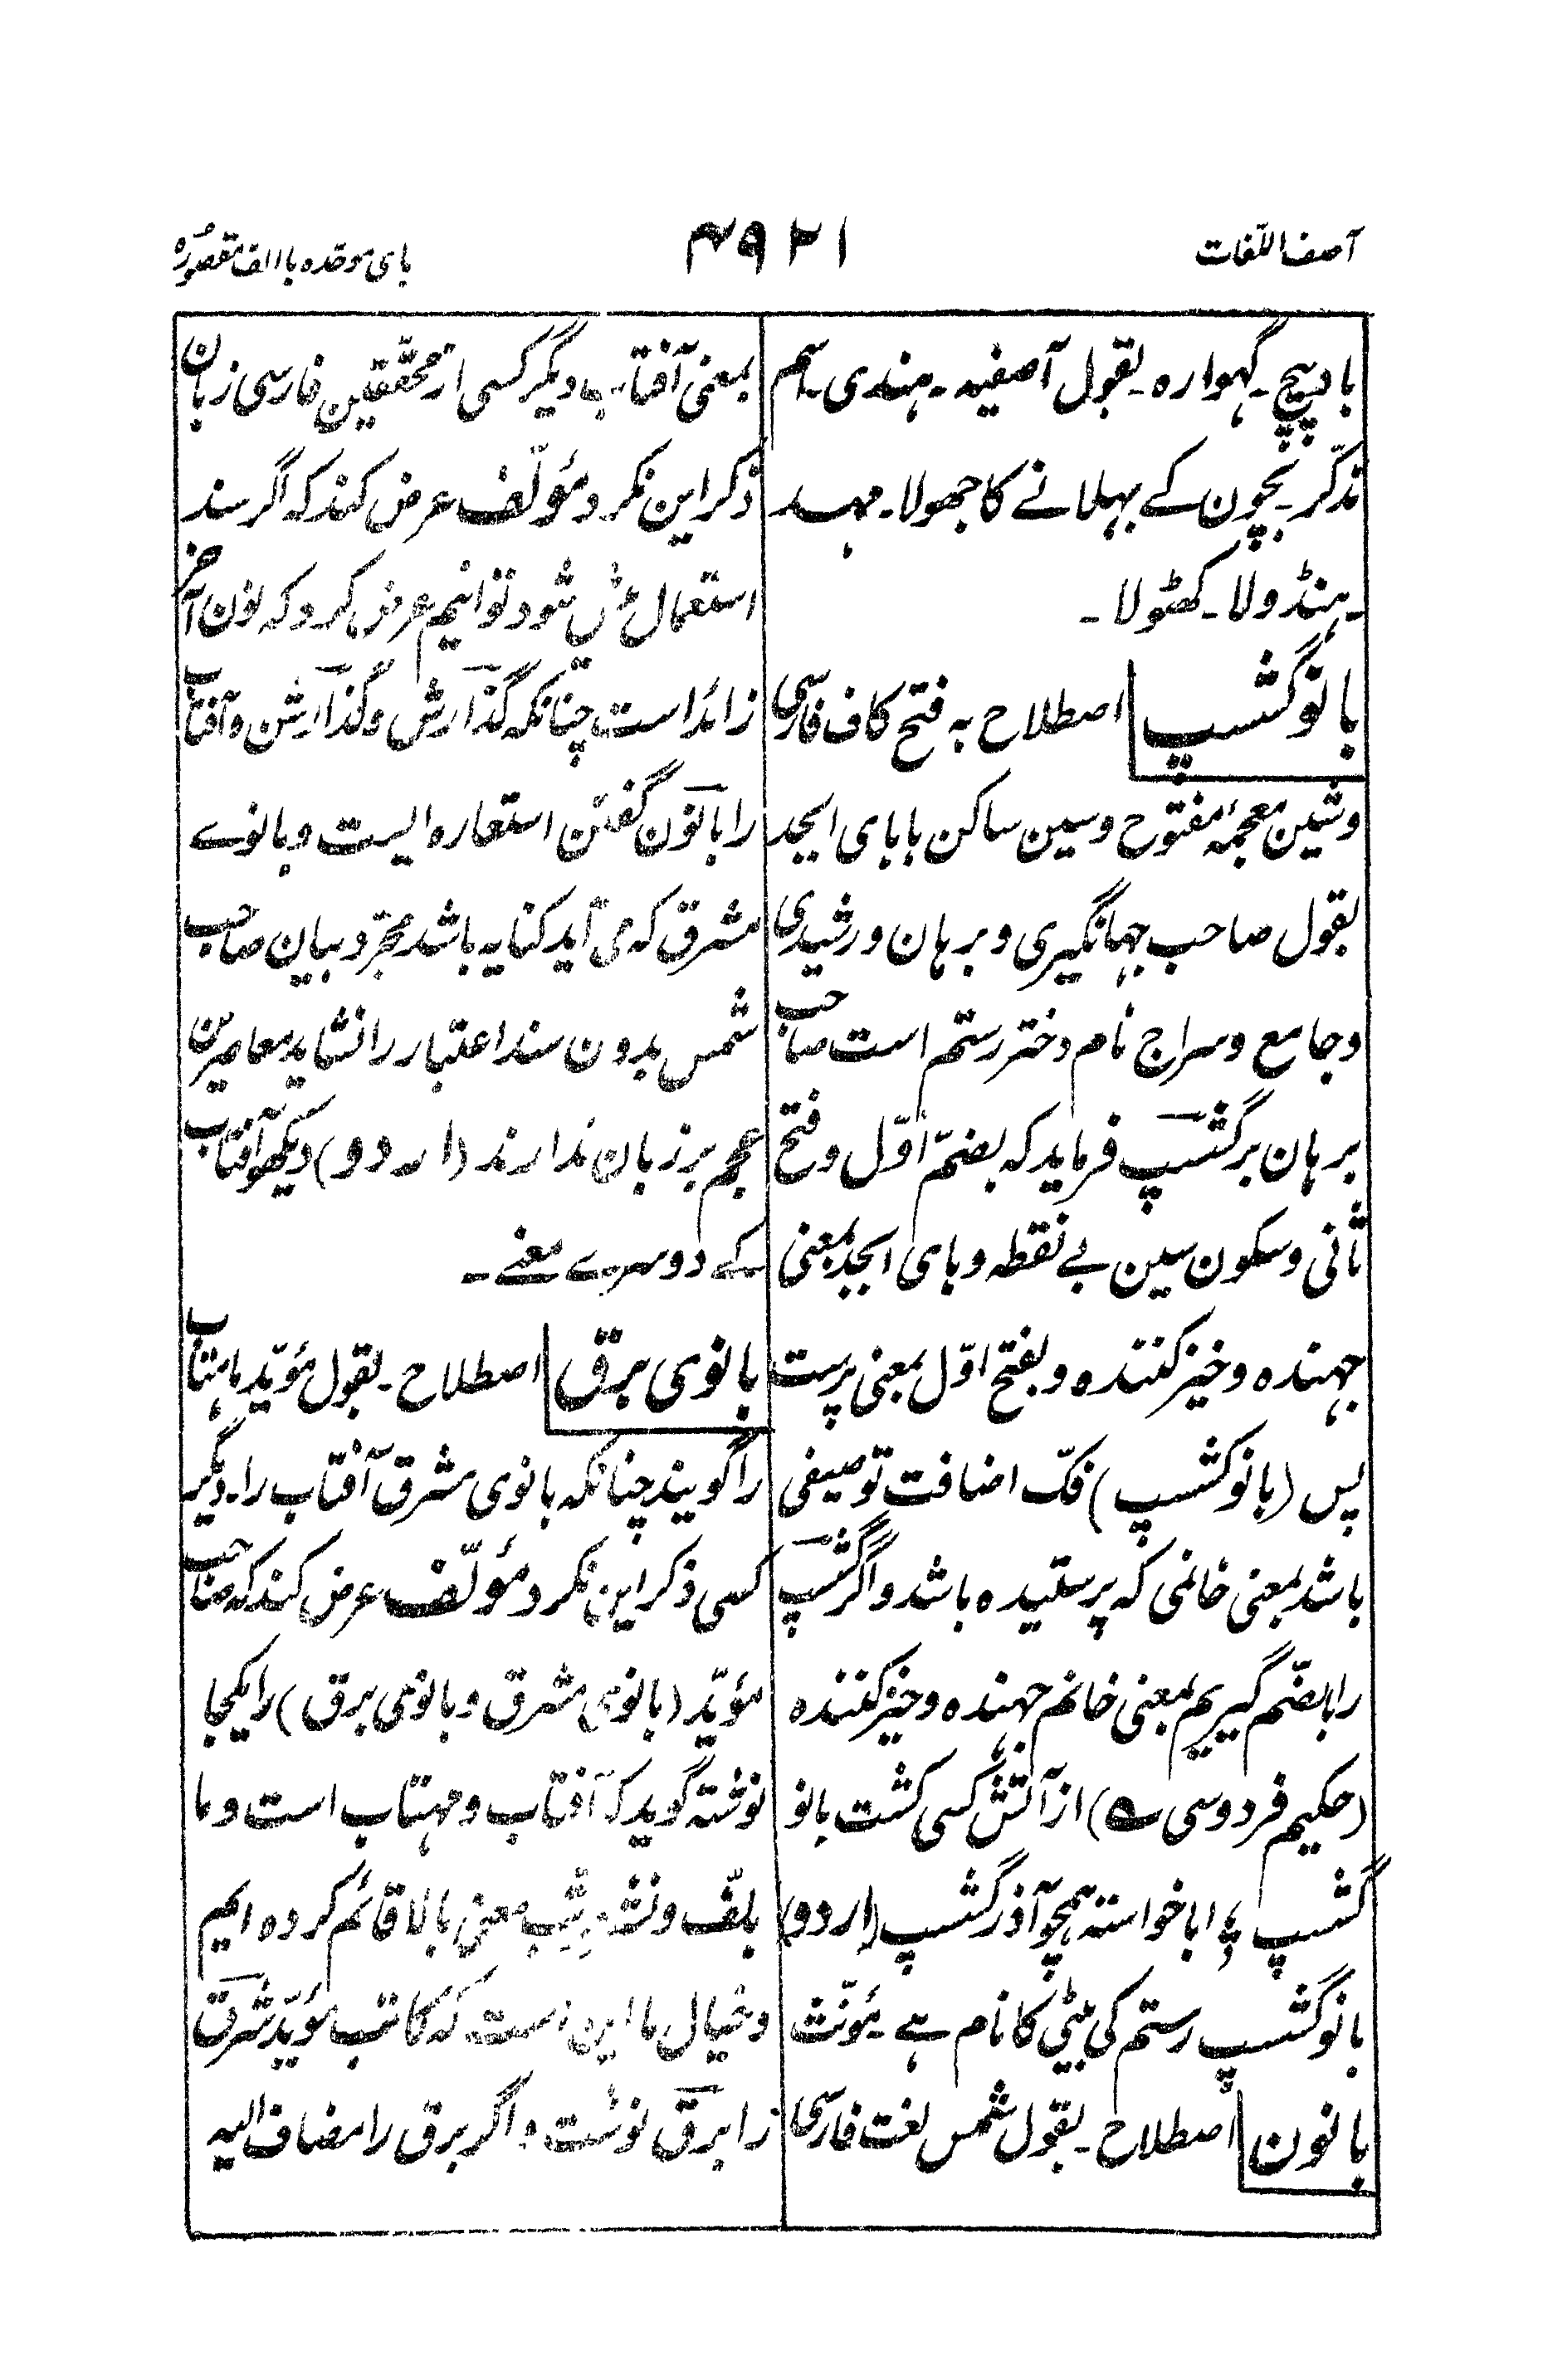 آصف اللّغات
۴۹۲۱
بای موحّده با الف مقصورہ
بادپیچ۔ گہوارہ۔ بقول آصفیہ۔ ہندی۔ اسم
مذکّر۔ بچّون کے بہلانے کا جھولا۔ مہد
۔ ہنڈولا۔ کھٹولا۔
بانوگشسپ اصطلاح بہ فتح کاف فارسی
وشین معجمۂ مفتوح وسین ساکن با بای ابجد
بقول صاحب جہانگیری و برہان و رشیدی
وجامع وسراج نام دختر رستم است صاحب
برہان برگشسپ فرماید کہ بضمّ اوّل و فتح
ثانی وسکون سین بے نقطہ و بای ابجد بمعنی
جہندہ وخیزکنندہ و بفتح اوّل بمعنی پرست
پس (بانوگشسپ) فکّ اضافت توصیفی
باشد بمعنی خانمی کہ پرستیدہ باشد واگر گشسپ
را بضمّ گیریم بمعنی خانم جہندہ وخیزکنندہ
(حکیم فردوسی ؎) از آتش کسی کشت بانو
گشسپ ؛ ابا خواستہ ہمچو آذرگشسپ (اردو)
بانوگشسپ رستم کی بیٹی کا نام ہے۔ مؤنّث
بانون اصطلاح۔ بقول شمس لغت فارسی
بمعنی آفتاب دیگر کسی از محقّقین فارسی زبان
ذکر این نکرد مؤلّف عرض کند کہ اگر سند
استعمال پیش شود توانیم عرض کرد کہ نون آخر
زائد است چنانکہ گذارش وگذارشن و آفتاب
را بانون گفتن استعارہ ایست و بانوے
مشرق کہ می آید کنایہ باشد مجرّد بیان صاحب
شمس بدون سند اعتبار را نشاید معاصرین
عجم برزبان ندارند (اردو) دیکھو آفتاب
کے دوسرے معنے۔
بانوی برق اصطلاح۔ بقول مؤیّد ماہتاب
را گویند چنانکہ بانوی مشرق آفتاب را۔ دیگر
کسی ذکر این نکرد مؤلّف عرض کند کہ صاحب
مؤیّد (بانوی مشرق و بانوی برق) را یکجا
نوشتہ گوید کہ آفتاب و مہتاب است و ما
بلفّ ونشر مرتّب معنی بالا قائم کردہ ایم
وخیال ما این است کہ کاتب مؤیّد شرق
را برق نوشت و اگر برق را مضاف الیہ